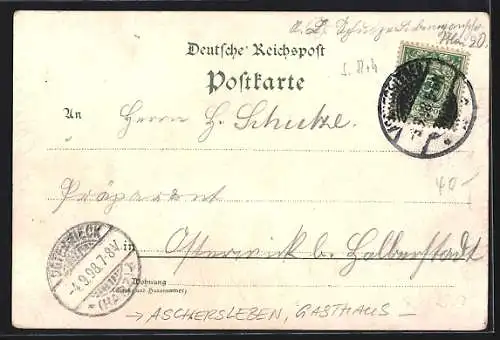 Deutsche Reichspost
Postkarte
An Herrn H. Schulze.
Präparant
in Osterwieck b. Halberstadt
Wohnung
(Straße und Hausnummer)
40-
OSTERWIECK
-4.9.98.7-8V.
(HARZ)
→ ASCHERSLEBEN, GASTHAUS -